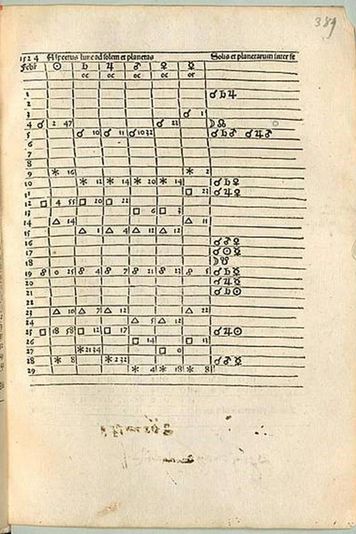 389
1524 Aspectus lune ad solem et planetas Solis et planetarum inter se
Febr ☉ ♄ ♃ ♂ ♀ ☿
oc oc oc oc or
1 ☌♄♃
2
3 ☌ 1
4 ☌ 2 47 ☌ 22 ☽☊
5 ☌ 10 ☌ 11 ☌ 10 32 ☌♄♂ ☌♃♂
6
7
8
9 ⚹ 16 ⚹ 2
10 ⚹ 12 ⚹ 14 ⚹ 20 ⚹ 14 ☌♄♀
11 □ 22 ☌♃♀
12 □ 4 55 □ 20 □ 22
13 □ 6 □ 3
14 △ 14 △ 11
15 △ 1 △ 4 △ 12 △ 12
16 ☌♂♀
17 ☌☉☿
18 ☽☋
19 ☍ 0 25 ☍ 4 ☍ 7 ☍ 21 ☍ 22 ☍ 5 ☌♄☿
20 ☌♃☿
21 ☌♄☉
22
23 △ 10 △ 7 △ 12 △ 22
24 △ 5 △ 12
25 □ 18 58 □ 12 □ 17 ☌♃☉
26 □ 14 □ 13
27 ⚹ 21 34 □ 0
28 ⚹ 8 ⚹ 2 32 ☌♂☿
29 ⚹ 4 ⚹ 18 ⚹ 8